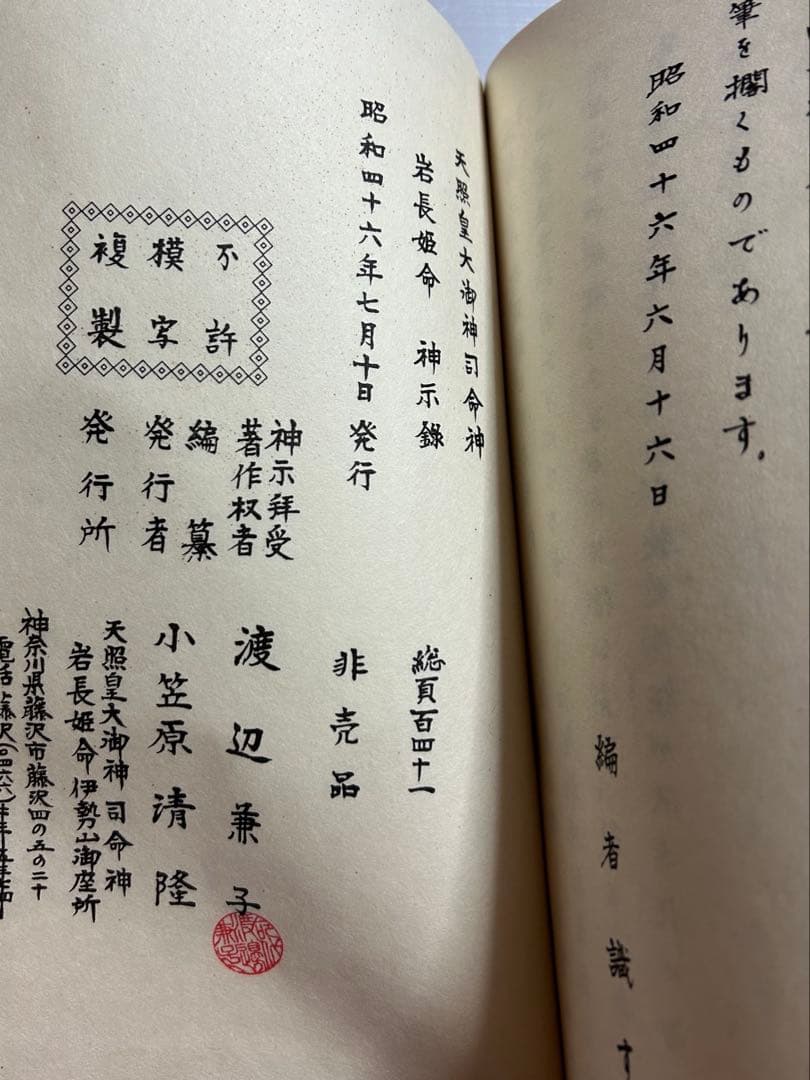 筆を擱くものであります。
昭和四十六年六月十六日
編者識す
天照皇大御神司命神
岩長姫命 神示録
総頁百四十一
昭和四十六年七月十日発行
非売品
不許
模写
複製
神示拝受
著作权者
渡辺兼子
編纂
発行者
小笠原清隆
発行所
天照皇大御神司命神
岩長姫命伊勢山御座所
神奈川県藤沢市藤沢四の五の二十
電話藤沢